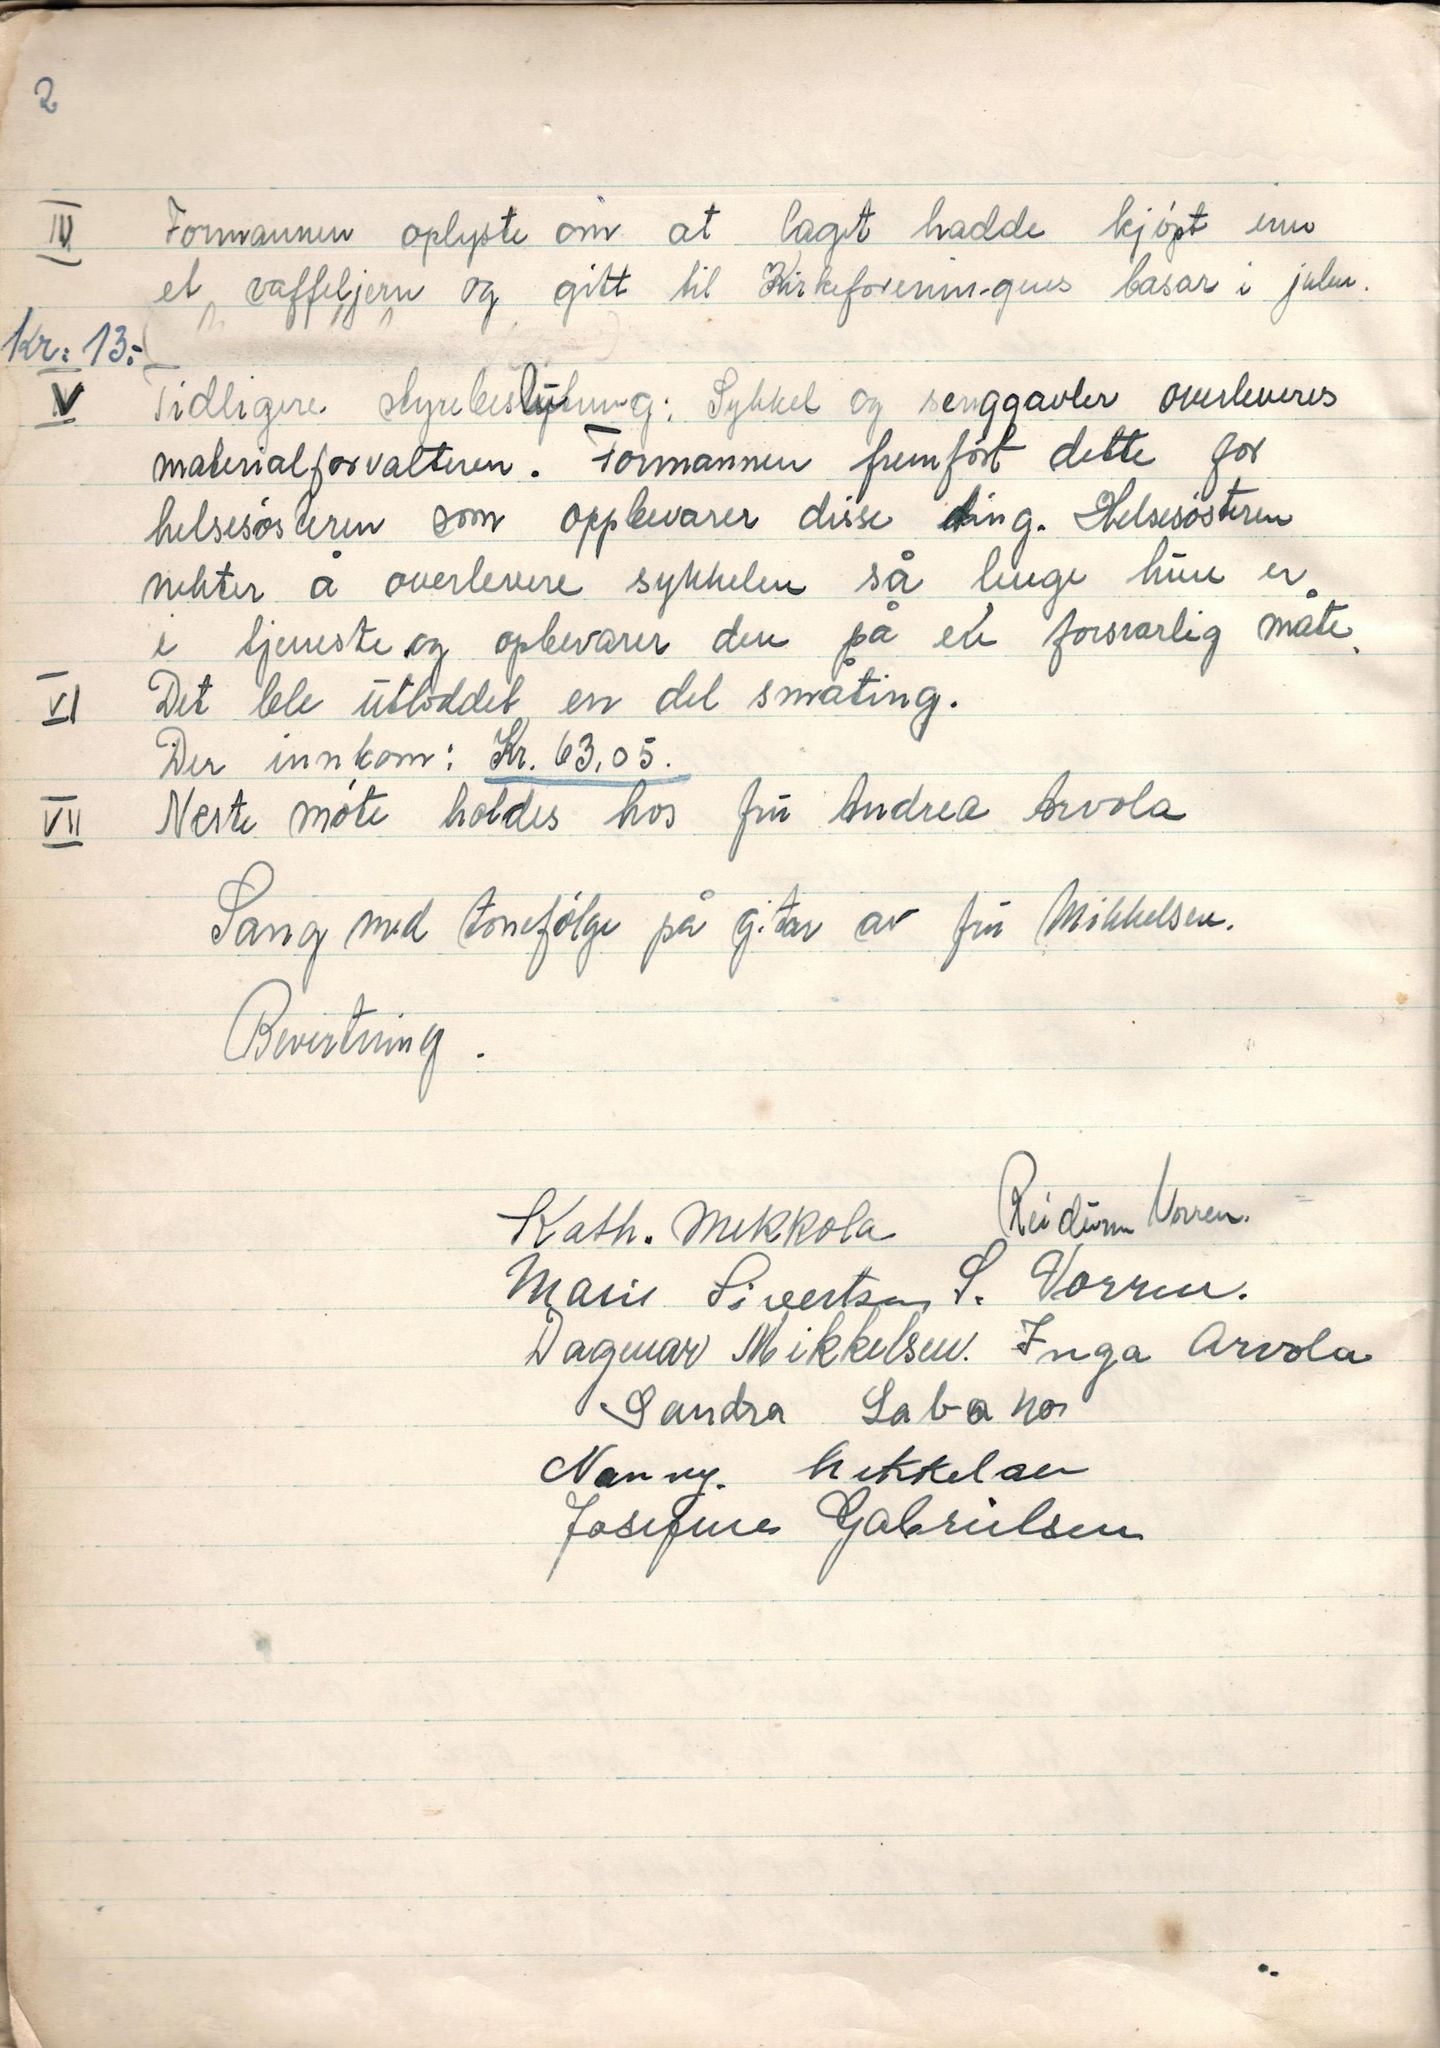 2
IV Formannen oplyste om at laget hadde kjøpt inn
et vaffeljern og gitt til Kirkeforeningens basar i julen.
Kr: 13.-
V Tidligere styrebeslutning: Sykkel og senggavler overleveres
materialforvalteren. Formannen fremført dette for
helsesøsteren som oppbevarer disse ting. Helsesøsteren
nekter å overlevere sykkelen så lenge hun er
i tjeneste og opbevarer den på en forsvarlig måte.
VI Det ble utloddet en del småting.
Der innkom: Kr. 63,05.
VII Neste møte holdes hos fru Andrea Arvola
Sang med tonefølge på gitar av fru Mikkelsen.
Bevertning.
Kath. Mekkola Reidunn Vorren.
Marie Sivertsen S. Vorren.
Dagmar Mikkelsen. Inga Arvola
Sandra Labano
Nanny. Mikkelsen
Josefine Gabrielsen